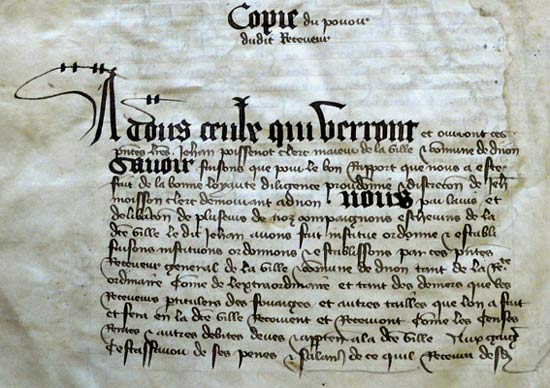 Copie du pouoir
dudit Receueur
A tous ceulx qui verront et orront ces
pntes lres Jehan poissenot clerc maieur de la ville & comune de diion
Sauoir faisons que pour le bon Rapport que nous a este
fait de la bonne loyaute diligence preudomie & discrecion de Jeh
moisson clerc demourant a diion Nous par lauis et
deliberacon de pluseurs de noz compaignons escheuins de la
dte ville le dit Jehan auons fait institue ordonne & establi
faisons instituons ordonnons & establissons par ces pntes
Receueur general de la ville & comune de diion tant de la Rte
ordinaire come de lextraordinaire et tant des deniers que les
Receueurs pticulers des fouaiges et autres tailles que lon a fait
et fera en la dte ville Recoiuent et Receuront come les censes
Rentes & autres debites deues & appten a la dte ville Aux gaiges
de ses penes & salaires de ce quil Receura